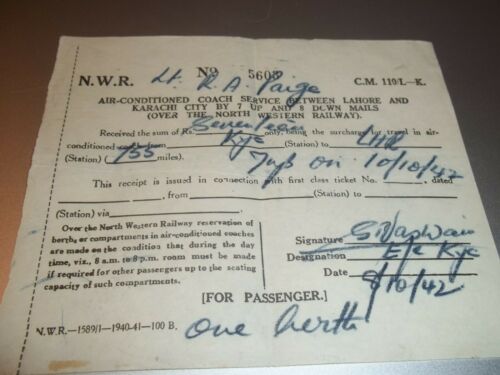 N.W.R. Lt. R. A. Paige No 5603 C.M. 110/L—K.
AIR-CONDITIONED COACH SERVICE BETWEEN LAHORE AND
KARACHI CITY BY 7 UP AND 8 DOWN MAILS
(OVER THE NORTH WESTERN RAILWAY).
Received the sum of Rs. Seventeen only, being the surcharge for travel in air-
conditioned coach from Kyc to LHR
(Station) (755 miles). 7 up on 10/10/42
This receipt is issued in connection with first class ticket No. , dated
from (Station) to
(Station) via
Over the North Western Railway reservation of
berth, or compartments in air-conditioned coaches
are made on the condition that during the day
time, viz., 8 a.m. to 8 p.m. room must be made
if required for other passengers up to the seating
capacity of such compartments.
Signature
Designation Kyc
Date 8/10/42
[FOR PASSENGER.]
N.W.R.—1589/1—1940-41—100 B. one berth